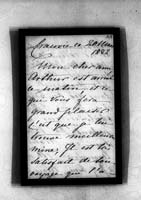 le 20 Mars
1882
Mon cher ami
Arthur est arrivé
ce matin, et ce
qui vous fera
grand plaisir
c'est que je lui
trouve meilleure
mine, Il est très
satisfait de son
voyage que l'a